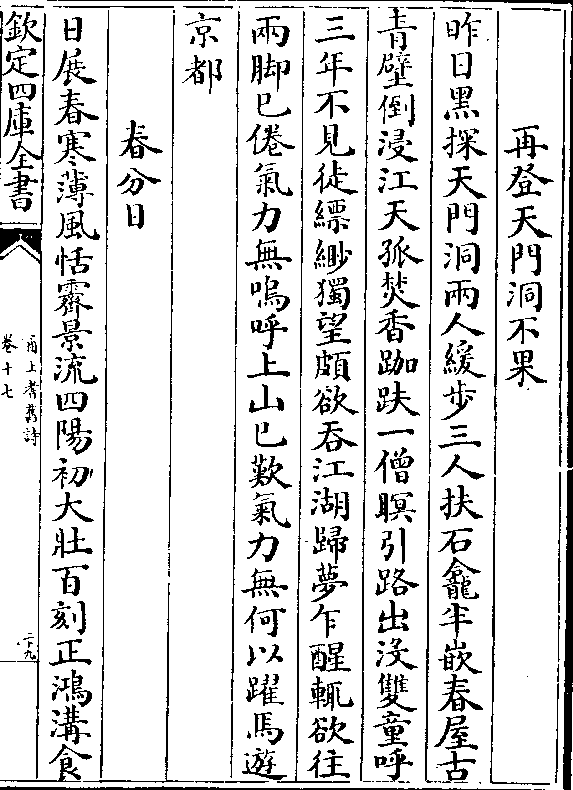 再登天門洞不果
昨日黑探天門洞兩人緩步三人扶石龕半嵌春屋古
青壁倒浸江天孤焚香跏趺一僧瞑引路出没雙童呼
三年不見徒縹緲獨望頗欲吞江湖歸夢乍醒輒欲往
兩脚已倦氣力無嗚呼上山已歎氣力無何以躍馬遊
京都
春分日
日展春寒薄風恬霽景流四陽初大壯百刻正鴻溝食
欽定四庫全書
甬上耆舊詩
卷十七
二十九